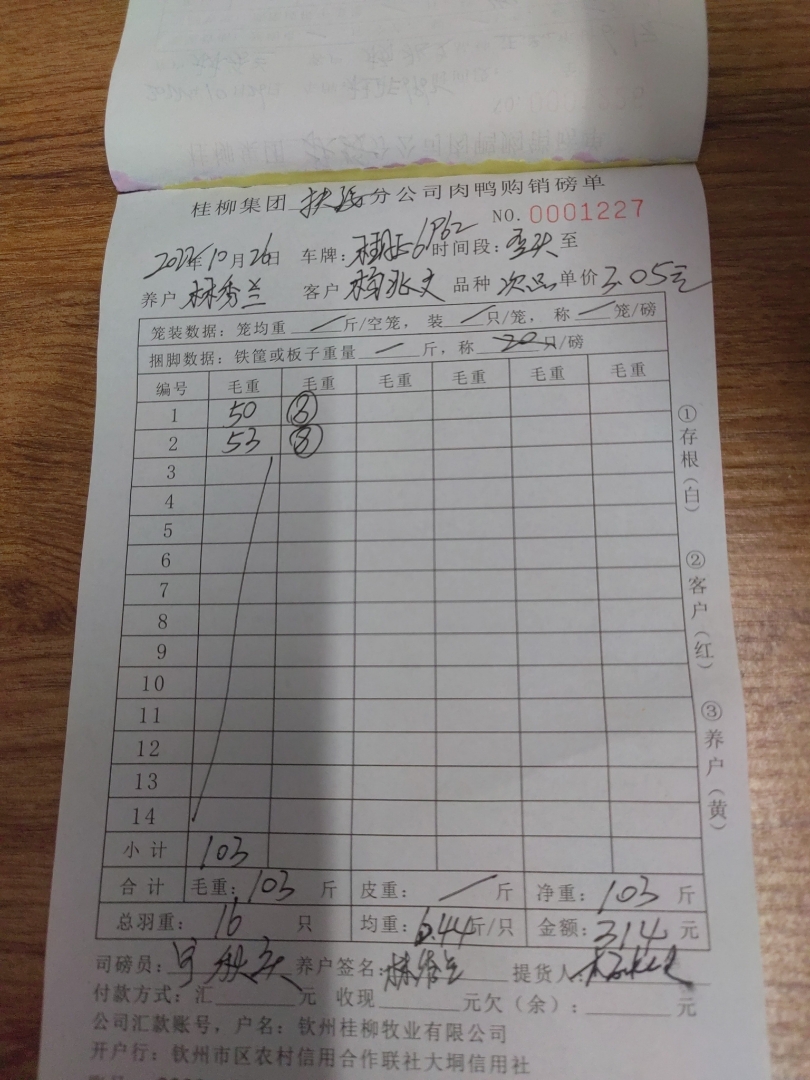 桂柳集团 分公司肉鸭购销磅单
NO. 0001227
2022年10月26日 车牌: 时间段: 至
养户 林秀兰 客户 品种 次品 单价 3.05元
笼装数据: 笼均重 / 斤/空笼, 装 / 只/笼, 称 / 笼/磅
捆脚数据: 铁筐或板子重量 / 斤, 称 20 只/磅
编号 毛重 毛重 毛重 毛重 毛重 毛重
1 50 ⑧
2 53 ⑧
3
4
5
6
7
8
9
10
11
12
13
14
小计 103
合计 毛重: 103 斤 皮重: / 斤 净重: 103 斤
总羽重: 16 只 均重: 6.44斤/只 金额: 314 元
司磅员: 养户签名: 提货人:
付款方式: 汇 元 收现 元欠(余): 元
公司汇款账号, 户名: 钦州桂柳牧业有限公司
开户行: 钦州市区农村信用合作联社大垌信用社
①存根(白)
②客户(红)
③养户(黄)